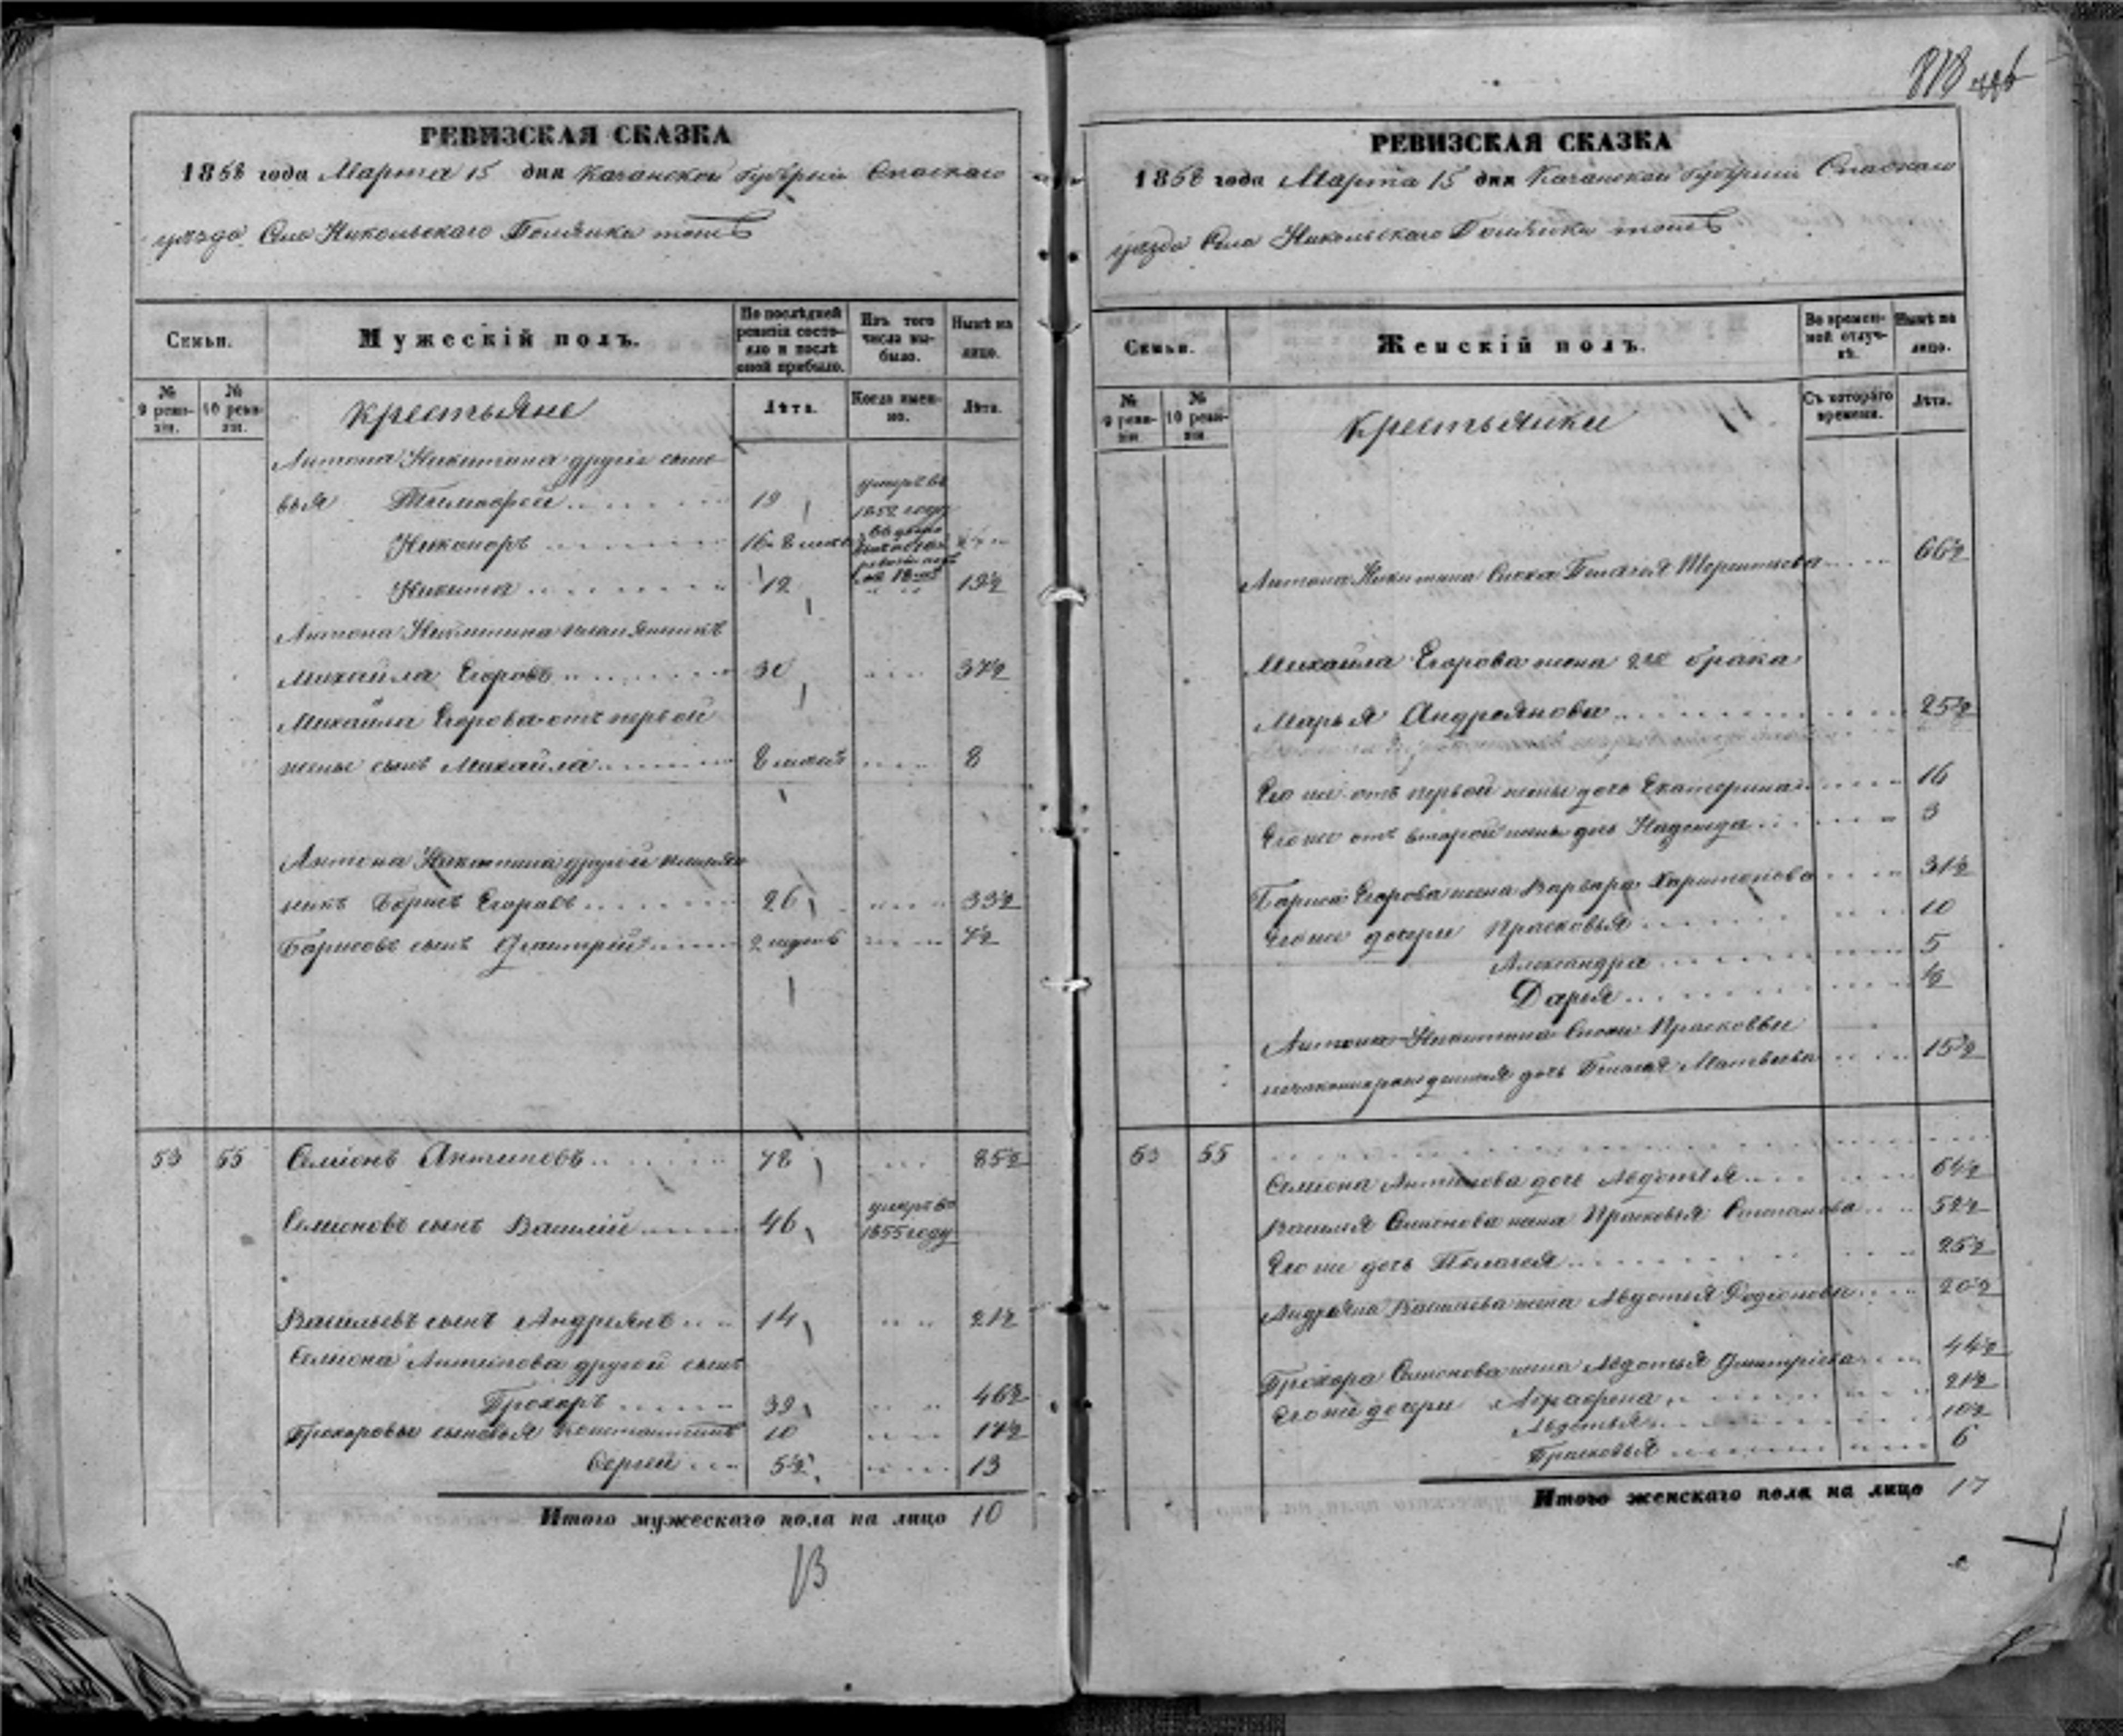 РЕВИЗСКАЯ СКАЗКА
1858 года Марта 15 дня Казанской Губерніи Спаскаго
уезда Села Никольскаго Полянка тожъ
Семьи.
Мужескій полъ.
По послѣдней ревизіи состояло и послѣ оной прибыло.
Изъ того числа выбыло.
Нынѣ на лицо.
№ 9 ревизіи.
№ 10 ревизіи.
крестьяне
Лѣта.
Когда именно.
Лѣта.
Антона Никитина другіе сыно
вья Тимофей 19 умеръ въ 1852 году
Никоноръ 16
Никита 12 19½
Антона Никитина племянникъ
Михайла Егоровъ 30 37½
Михайла Егорова отъ первой
жены сынъ Михайла 8
Антона Никитина другой племян
никъ Борисъ Егоровъ 26 33½
Борисовъ сынъ Дмитрій 2 недель 7½
53 55 Семіонъ Антиповъ 78 85½
Семіоновъ сынъ Василій 46 умеръ въ 1855 году
Васильевъ сынъ Андреянъ 14 21½
Семіона Антипова другой сынъ
Прохоръ 39 46½
Прохоровы сыновья Константинъ 10 17½
Сергей 5½ 13
Итого мужескаго пола на лицо 10
13
818
РЕВИЗСКАЯ СКАЗКА
1858 года Марта 15 дня Казанской Губерніи Спаскаго
уезда Села Никольскаго Полянка тожъ
Семьи.
Женскій полъ.
Во временной отлучкѣ.
Нынѣ на лицо.
№ 9 ревизіи
№ 10 ревизіи
крестьянки
Съ котораго времени.
Лѣта.
Антона Никитина Сноха Пелагея Терентьева 66½
Михайла Егорова жена 2го брака
Марья Андреянова 25½
Его же отъ первой жены дочь Екатерина 16
Его же отъ второй жены дочь Надежда 3
Бориса Егорова жена Варвара Харитонова 31½
Его же дочери Прасковья 10
Александра 5
Дарья ½
Антона Никитина Снохи Прасковьи
незаконнорожденная дочь Пелагея Матвеева 15½
53 55
Семіона Антипова дочь Авдотья
Василья Семіонова жена Прасковья Степанова 52½
Его же дочь Пелагея 25½
Андреяна Васильева жена Авдотья Родіонова 20½
Прохора Семіонова жена Авдотья Дмитріева 44½
Его же дочери Аграфена 21½
Авдотья 10½
Прасковья 6
Итого женскаго пола на лицо 17